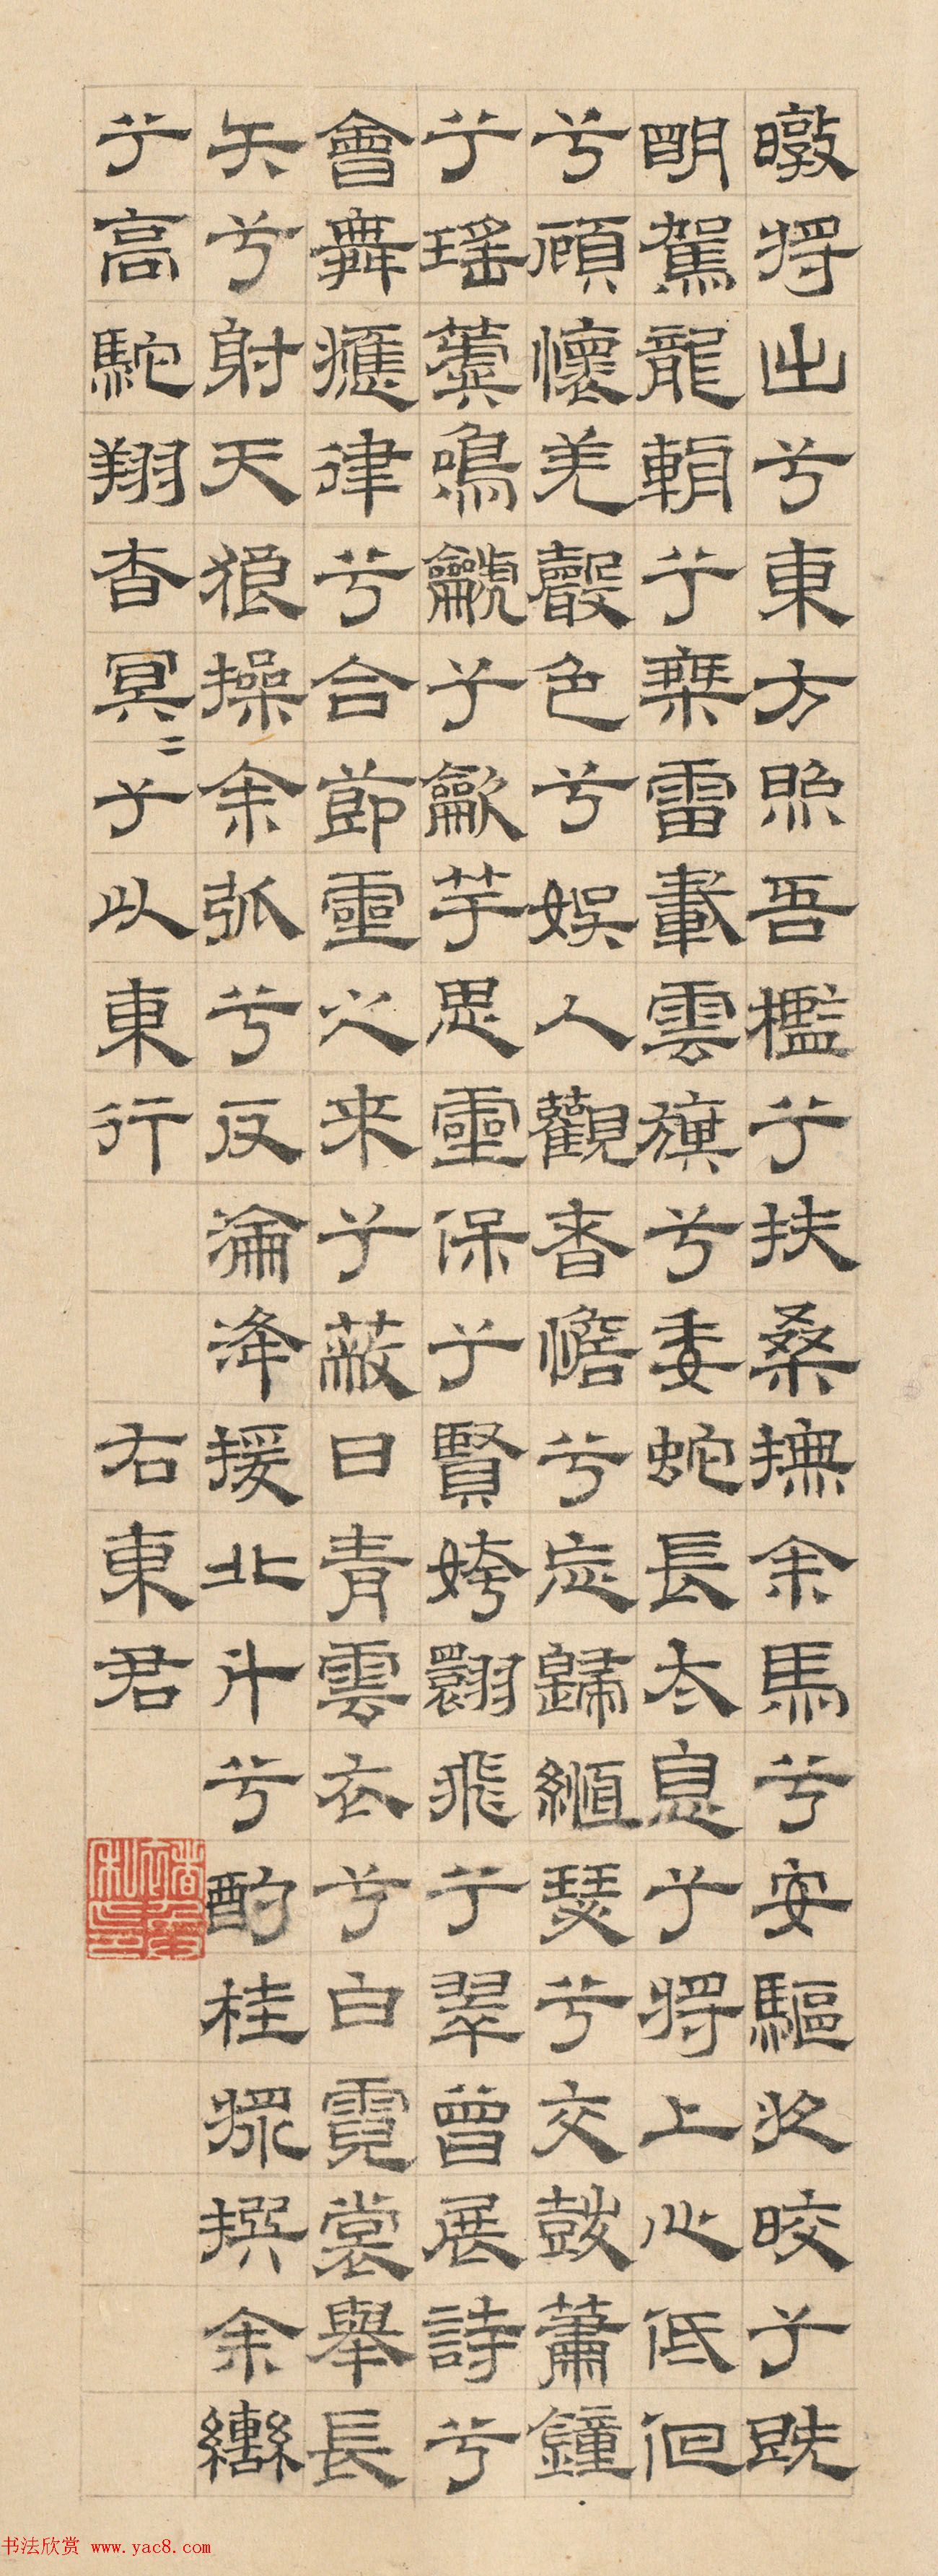 暾將出兮東方照吾檻兮扶桑撫余馬兮安驅夜皎兮既
明駕龍輈兮乘雷載雲旗兮委蛇長太息兮將上心低佪
兮顧懷羌聲色兮娛人觀者憺兮忘歸緪瑟兮交鼓蕭鐘
兮瑤簴鳴龥兮龡竽思靈保兮賢姱翾飛兮翠曾展詩兮
會舞應律兮合節靈之来兮蔽日青雲衣兮白霓裳舉長
矢兮射天狼操余弧兮反淪降援北斗兮酌桂漿撰余轡
兮高駝翔杳冥〻兮以東行 右東君
书法欣赏 www.yac8.com